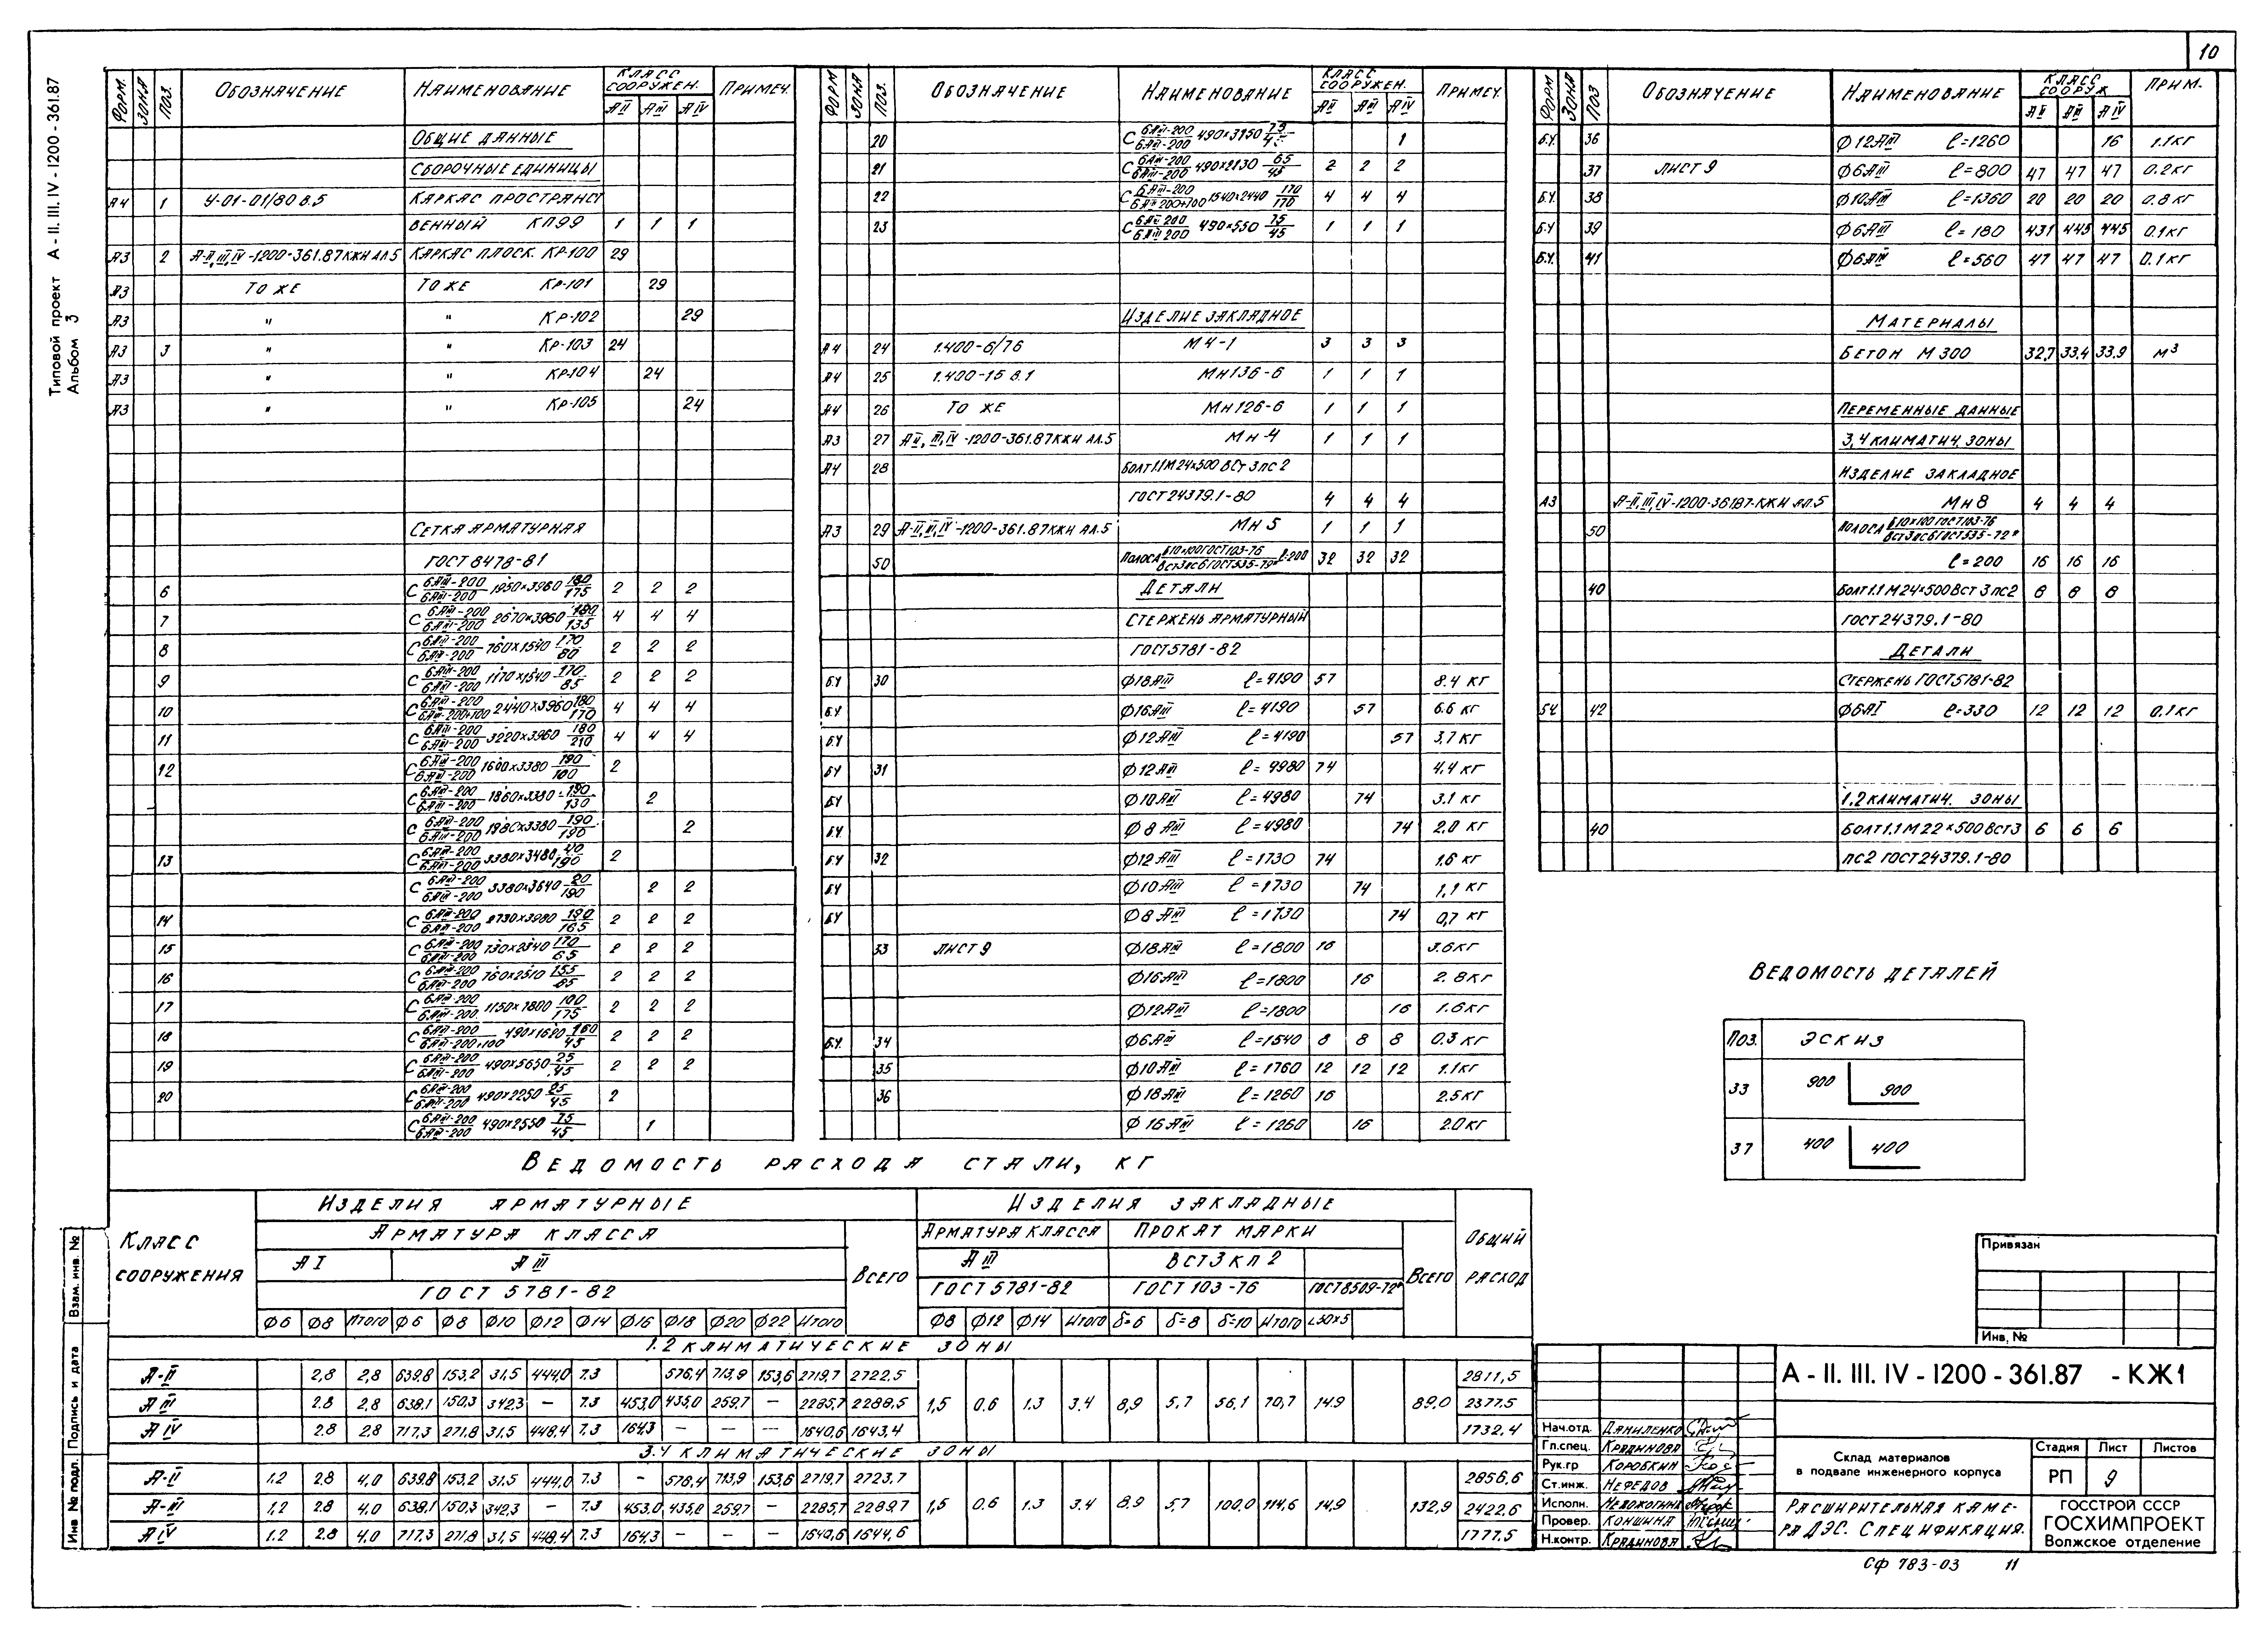 10
Типовой проект А - II. III. IV - 1200 - 361.87
Альбом 3
ФОРМ. ЗОНА ПОЗ. ОБОЗНАЧЕНИЕ НАИМЕНОВАНИЕ КЛАСС СООРУЖЕН. АII АIII АIV ПРИМЕЧ.
ОБЩИЕ ДАННЫЕ
СБОРОЧНЫЕ ЕДИНИЦЫ
А4 1 У-01-01/80 В.5 КАРКАС ПРОСТРАНСТ
ВЕННЫЙ КП99 1 1 1
А3 2 А-II,III,IV-1200-361.87КЖИ АЛ.5 КАРКАС ПЛОСК. КР-100 29
А3 ТО ЖЕ ТО ЖЕ КР-101 29
А3 " " КР-102 29
А3 3 " " КР-103 24
А3 " " КР-104 24
А3 " " КР-105 24
СЕТКА АРМАТУРНАЯ
ГОСТ 8478-81
6 С 6АIII-200/6АIII-200 1950×3960 180/175 2 2 2
7 С 6АIII-200/6АIII-200 2670×3960 180/135 4 4 4
8 С 6АIII-200/6АIII-200 760×1540 170/80 2 2 2
9 С 6АIII-200/6АIII-200 1170×1540 170/85 2 2 2
10 С 6АIII-200/6АIII-200+100 2440×3960 180/170 4 4 4
11 С 6АIII-200/6АIII-200 3220×3960 180/210 4 4 4
12 С 6АIII-200/6АIII-200 1600×3380 190/100 2
С 6АIII-200/6АIII-200 1860×3380 190/130 2
С 6АIII-200/6АIII-200 1980×3380 190/190 2
13 С 6АIII-200/6АIII-200 3380×3480 40/190 2
С 6АIII-200/6АIII-200 3380×3640 20/190 2 2
14 С 6АIII-200/6АIII-200 2730×3980 190/165 2 2 2
15 С 6АIII-200/6АIII-200 730×2340 170/65 2 2 2
16 С 6АIII-200/6АIII-200 760×2510 155/65 2 2 2
17 С 6АIII-200/6АIII-200 1150×7800 100/175 2 2 2
18 С 6АIII-200/6АIII-200+100 490×1620 160/45 2 2 2
19 С 6АIII-200/6АIII-200 490×5650 25/45 2 2 2
20 С 6АIII-200/6АIII-200 490×2250 25/45 2
С 6АIII-200/6АIII-200 490×2550 75/45 1
ФОРМ ЗОНА ПОЗ. ОБОЗНАЧЕНИЕ НАИМЕНОВАНИЕ КЛАСС СООРУЖЕН. АII АIII АIV ПРИМЕЧ.
20 С 6АIII-200/6АIII-200 490×3950 75/45 1
21 С 6АIII-200/6АIII-200 490×2130 65/45 2 2 2
22 С 6АIII-200/6АIII200+100 1540×2440 170/170 4 4 4
23 С 6АIII200/6АIII200 490×550 75/45 1 1 1
ИЗДЕЛИЕ ЗАКЛАДНОЕ
А4 24 1.400-6/76 М4-1 3 3 3
А4 25 1.400-15 В.1 МН136-6 1 1 1
А4 26 ТО ЖЕ МН126-6 1 1 1
А3 27 АII, III, IV-1200-361.87КЖИ АЛ.5 МН-4 1 1 1
А4 28 БОЛТ1.1М24×500 ВСТ3ПС2
ГОСТ24379.1-80 4 4 4
А3 29 А-II,III,IV-1200-361.87КЖИ АЛ.5 МН5 1 1 1
50 ПОЛОСА Б10×100ГОСТ103-76/ВСТ3ПС6ГОСТ535-79* ℓ-200 32 32 32
ДЕТАЛИ
СТЕРЖЕНЬ АРМАТУРНЫЙ
ГОСТ5781-82
Б.Ч 30 Ф18АIII ℓ=4190 57 8.4 КГ
Б.Ч Ф16АIII ℓ=4190 57 6.6 КГ
Б.Ч Ф12АIII ℓ=4190 57 3,7 КГ
Б.Ч 31 Ф12АIII ℓ=4980 74 4.4 КГ
Б.Ч Ф10АIII ℓ=4980 74 3.1 КГ
Б.Ч Ф8АIII ℓ=4980 74 2.0 КГ
Б.Ч 32 Ф12АIII ℓ=1730 74 1.6 КГ
Б.Ч Ф10АIII ℓ=1730 74 1,1 КГ
Б.Ч Ф8АIII ℓ=1730 74 0,7 КГ
33 ЛИСТ 9 Ф18АIII ℓ=1800 16 3.6КГ
Ф16АIII ℓ=1800 16 2.8КГ
Ф12АIII ℓ=1800 16 1.6КГ
Б.Ч. 34 Ф6АIII ℓ=1540 8 8 8 0.3 КГ
35 Ф10АIII ℓ=1760 12 12 12 1.1КГ
36 Ф18АIII ℓ=1260 16 2.5КГ
Ф16АIII ℓ=1260 16 2.0КГ
ФОРМ ЗОНА ПОЗ ОБОЗНАЧЕНИЕ НАИМЕНОВАНИЕ КЛАСС СООРУЖ. АII АIII АIV ПРИМ.
Б.Ч. 36 Ф12АIII ℓ=1260 16 1.1КГ
37 ЛИСТ 9 Ф6АIII ℓ=800 47 47 47 0.2КГ
Б.Ч. 38 Ф10АIII ℓ=1360 20 20 20 0.8 КГ
Б.Ч 39 Ф6АIII ℓ=180 431 445 445 0.1КГ
Б.Ч. 41 Ф6АIII ℓ=560 47 47 47 0.1КГ
МАТЕРИАЛЫ
БЕТОН М300 32,7 33,4 33,9 М3
ПЕРЕМЕННЫЕ ДАННЫЕ
3,4 КЛИМАТИЧ. ЗОНЫ
ИЗДЕЛИЕ ЗАКЛАДНОЕ
А3 А-II,III,IV-1200-36187-КЖИ АЛ.5 МН8 4 4 4
50 ПОЛОСА Б10×100 ГОСТ103-76/ВСТ3ПС6ГОСТ535-72*
ℓ=200 16 16 16
40 БОЛТ1.1М24×500ВСТ3ПС2 8 8 8
ГОСТ24379.1-80
ДЕТАЛИ
СТЕРЖЕНЬ ГОСТ5781-82
БЧ 42 Ф6АI ℓ=330 12 12 12 0.1КГ
1.2 КЛИМАТИЧ. ЗОНЫ
40 БОЛТ1.1М22×500ВСТ3 6 6 6
ПС2 ГОСТ24379.1-80
ВЕДОМОСТЬ ДЕТАЛЕЙ
ПОЗ. ЭСКИЗ
33 900 900
37 400 400
ВЕДОМОСТЬ РАСХОДА СТАЛИ, КГ
КЛАСС СООРУЖЕНИЯ ИЗДЕЛИЯ АРМАТУРНЫЕ ИЗДЕЛИЯ ЗАКЛАДНЫЕ ОБЩИЙ РАСХОД
АРМАТУРА КЛАССА ВСЕГО АРМАТУРА КЛАССА ПРОКАТ МАРКИ ВСЕГО
АI АIII АIII ВСТ3КП2
ГОСТ 5781-82 ГОСТ 5781-82 ГОСТ 103-76 ГОСТ8509-72*
Ф6 Ф8 ИТОГО Ф6 Ф8 Ф10 Ф12 Ф14 Ф16 Ф18 Ф20 Ф22 ИТОГО Ф8 Ф12 Ф14 ИТОГО δ=6 δ=8 δ=10 ИТОГО L50×5
1.2 КЛИМАТИЧЕСКИЕ ЗОНЫ
А-II 2,8 2,8 639.8 153,2 31,5 444,0 7.3 576,4 713,9 153,6 2719,7 2722.5 2811,5
АIII 2.8 2,8 638,1 150,3 342,3 — 7.3 453,0 435,0 259,7 — 2285,7 2288,5 1,5 0.6 1.3 3.4 8,9 5.7 56.1 70,7 14.9 89.0 2377.5
АIV 2.8 2.8 717,3 271,8 31,5 448,4 7.3 164,3 — — — 1640,6 1643,4 1732.4
3.4 КЛИМАТИЧЕСКИЕ ЗОНЫ
А-II 1.2 2.8 4,0 639.8 153,2 31,5 444,0 7.3 — 576,4 713,9 153,6 2719,7 2723,7 2856,6
А-III 1,2 2.8 4.0 638,1 150,3 342,3 — 7.3 453,0 435,0 259,7 — 2285,7 2289,7 1,5 0.6 1.3 3.4 8.9 5.7 100,0 114,6 14,9 132,9 2422.6
АIV 1.2 2.8 4.0 717.3 271,8 31,5 448,4 7.3 164,3 — — — 1640,6 1644,6 1777.5
Взам. инв. №
Подпись и дата
Инв № подл.
Привязан
Инв. №
А - II. III. IV - 1200 - 361.87 - КЖ1
Нач.отд. ДАНИЛЕНКО
Гл.спец. КРАДИНОВА
Рук.гр КОРОБКИН
Ст.инж. НЕФЕДОВ
Исполн.
Провер. КОНШИНА
Н.контр. КРАДИНОВА
Склад материалов
в подвале инженерного корпуса
Стадия Лист Листов
РП 9
РАСШИРИТЕЛЬНАЯ КАМЕ-
РА ДЭС. СПЕЦИФИКАЦИЯ.
ГОССТРОЙ СССР
ГОСХИМПРОЕКТ
Волжское отделение
СФ 783-03 11